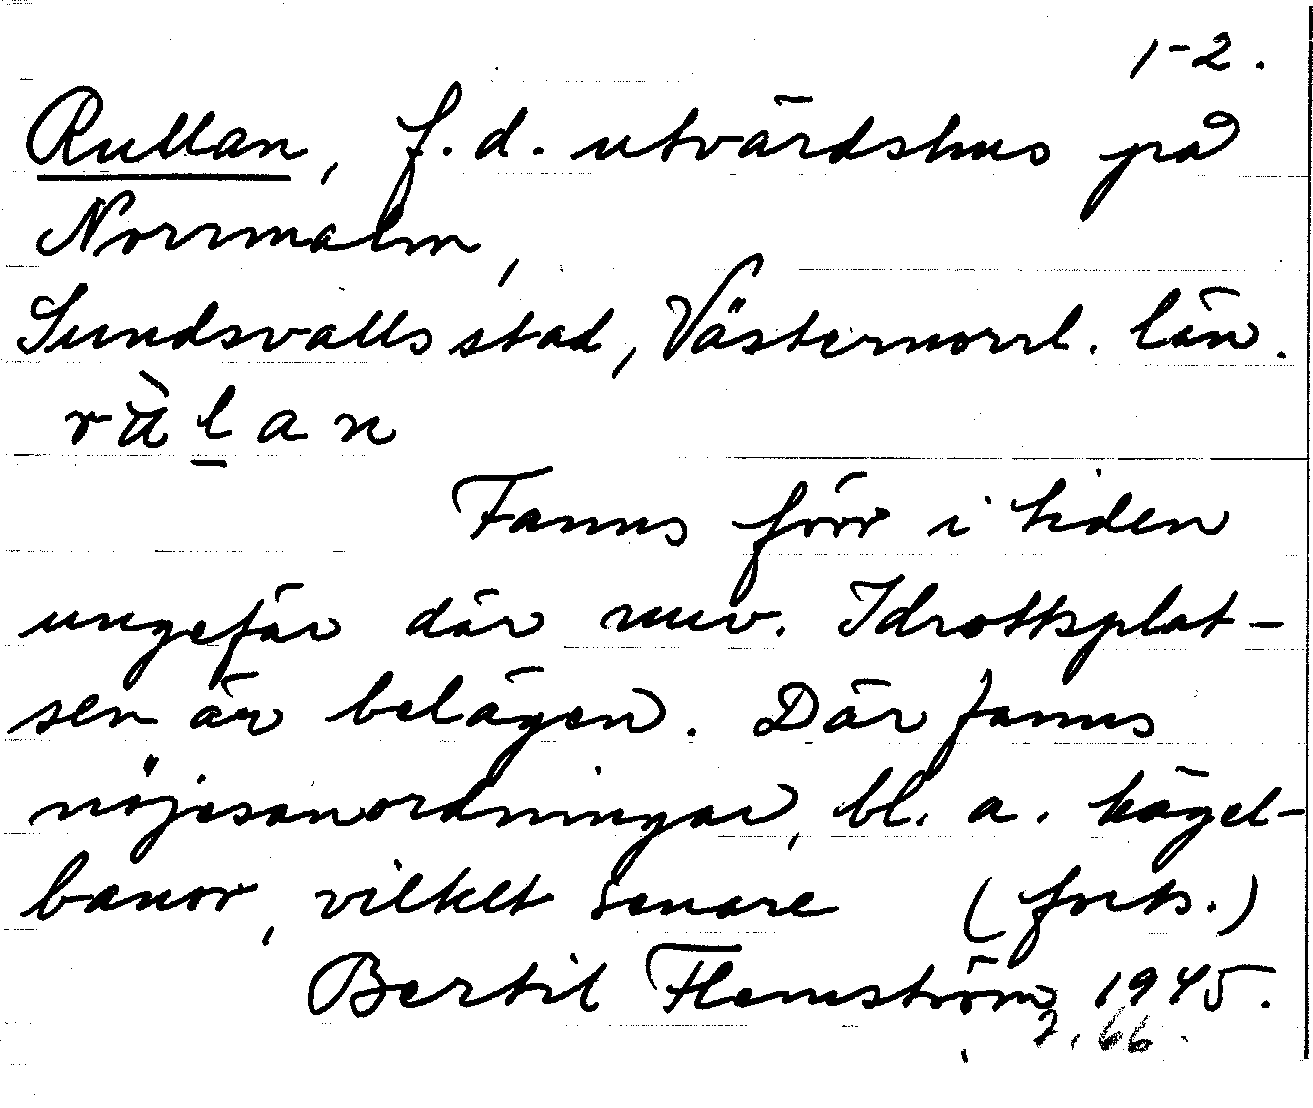 1-2.
Rullan, f.d. utvärdshus på
Norrmalm,
Sundsvalls stad, Västernorrl. län.
Fanns förr i tiden
ungefär där nuv. Idrottsplat-
sen är belägen. Där fanns
nöjesanordningar, bl. a. kägel-
banor, vilket senare (forts.)
Bertil Flemström 1945.
2.66